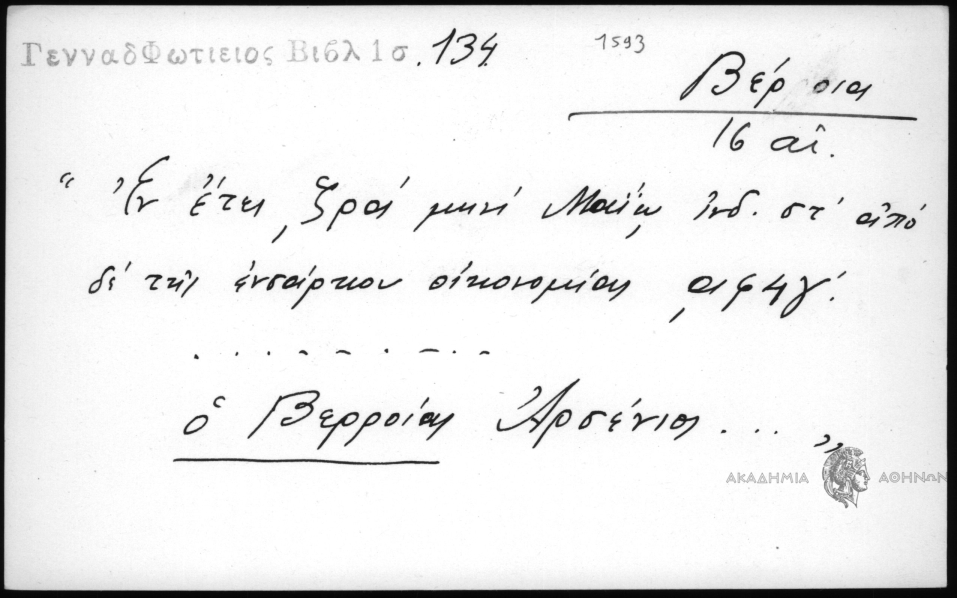 ΓενναδΦωτιειος Βιβλ 1σ. 134
1593
Βέρροια
16 αἰ.
“ Ἐν ἔτει ͵ζραʹ μηνὶ Μαΐῳ ἰνδ. στʹ ἀπὸ
δὲ τῆς ἐνσάρκου οἰκονομίας ͵αφϟγʹ.
. . . . . . . . . .
ὁ Βερροίας Ἀρσένιος ... „
ΑΚΑΔΗΜΙΑ ΑΘΗΝΩΝ